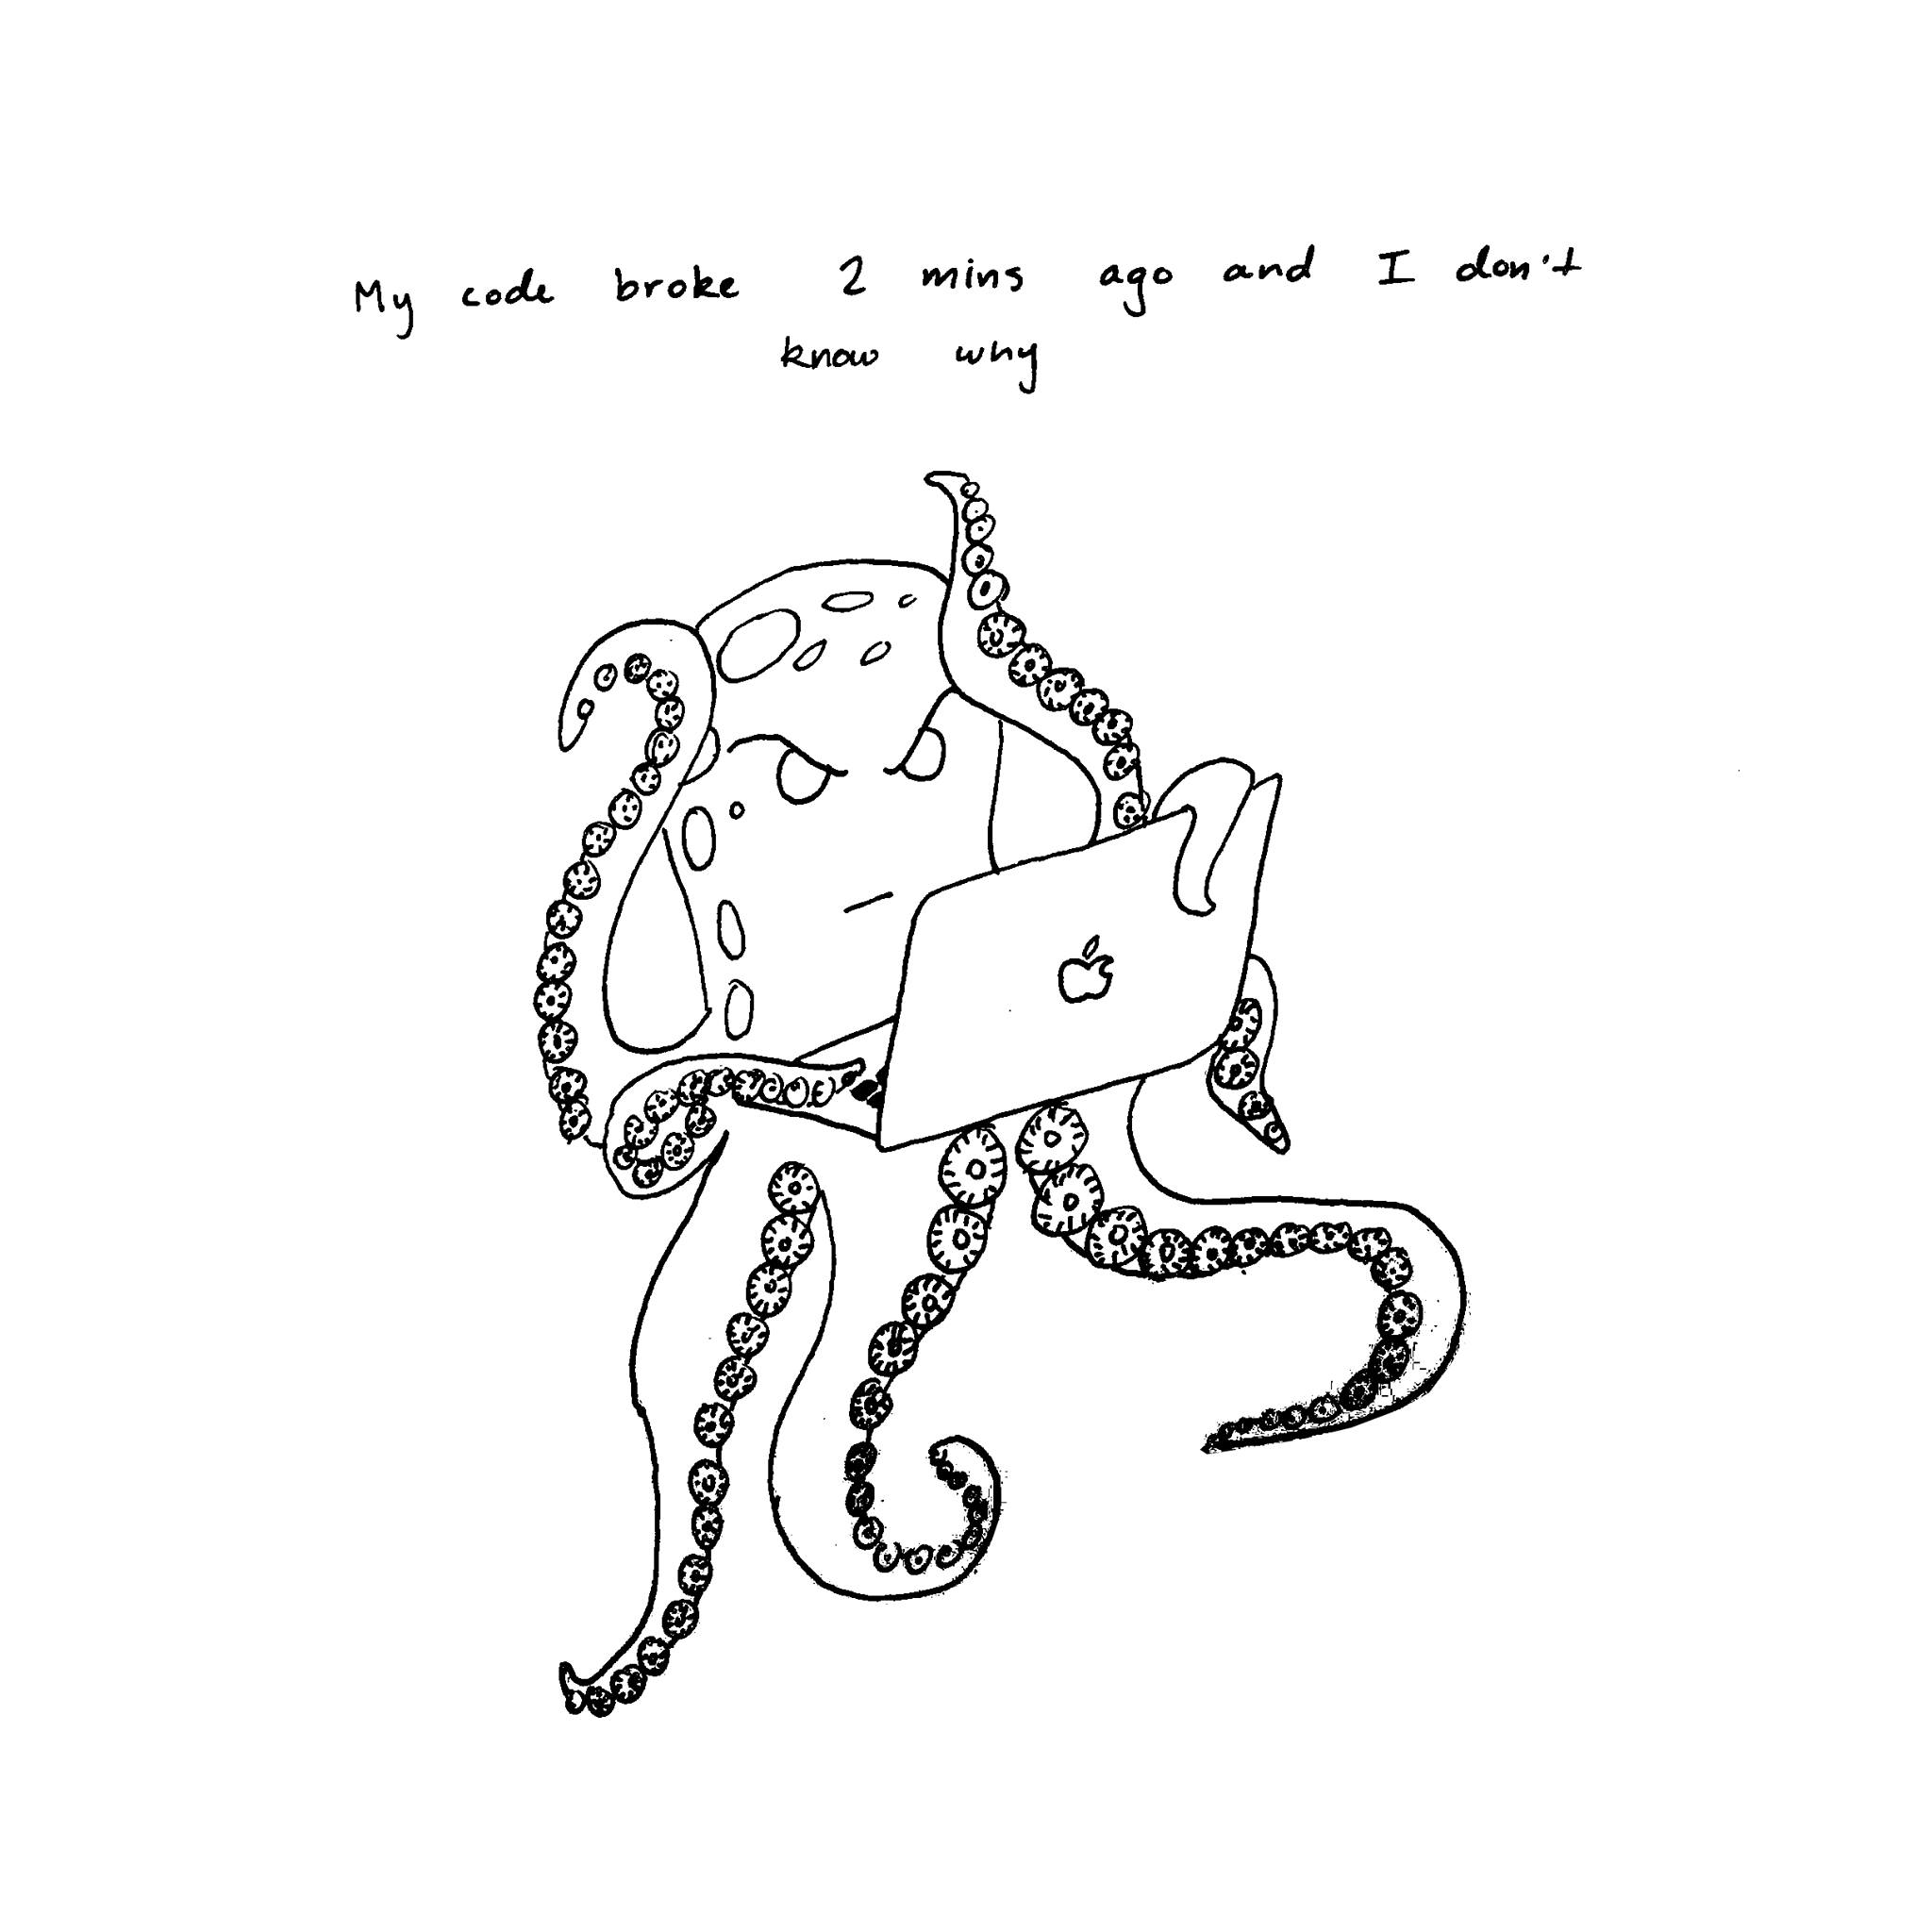 My code broke 2 mins ago and I don't
know why